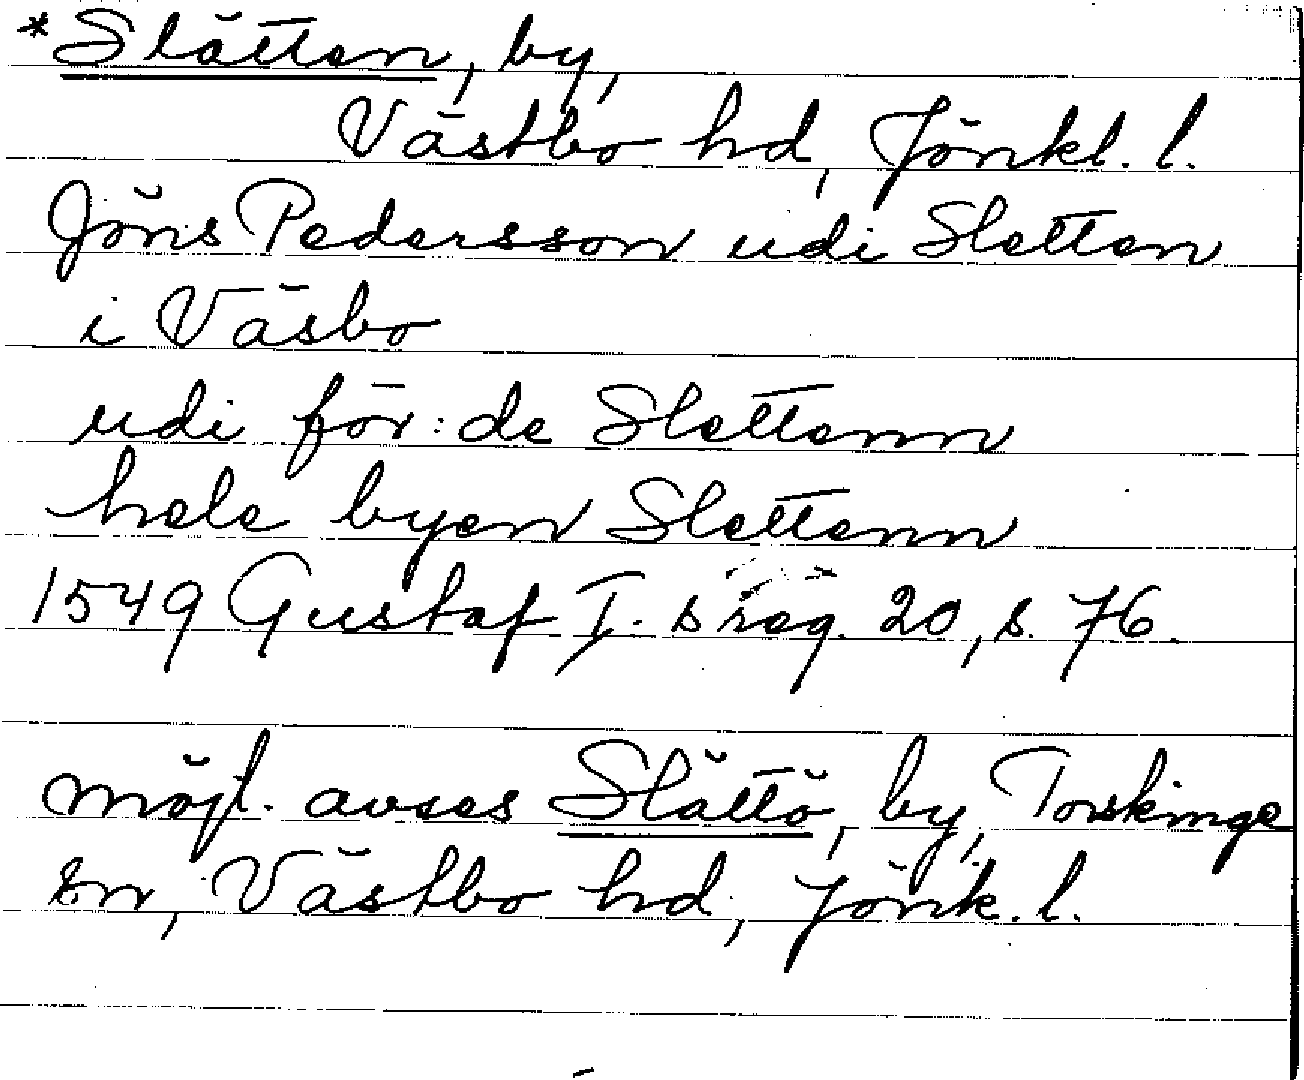 *Slätten, by,
Västbo hd, Jönkl. l.
Jöns Pedersson udi Sletten
i Väsbo
udi för:de Slettenn
hele byen Slettenn
1549 Gustaf I. s reg. 20, s. 76.
möjl. avses Slättö, by, Torskinge
sn, Västbo hd, Jönk. l.